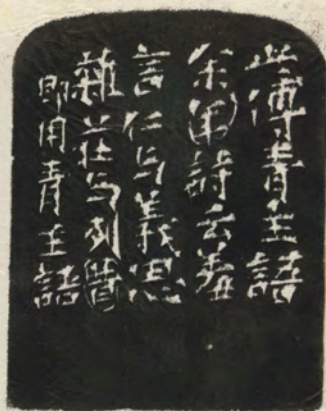 此傅青主語
余詩云羞
言仁与義思
雜莊与列
即用青主語